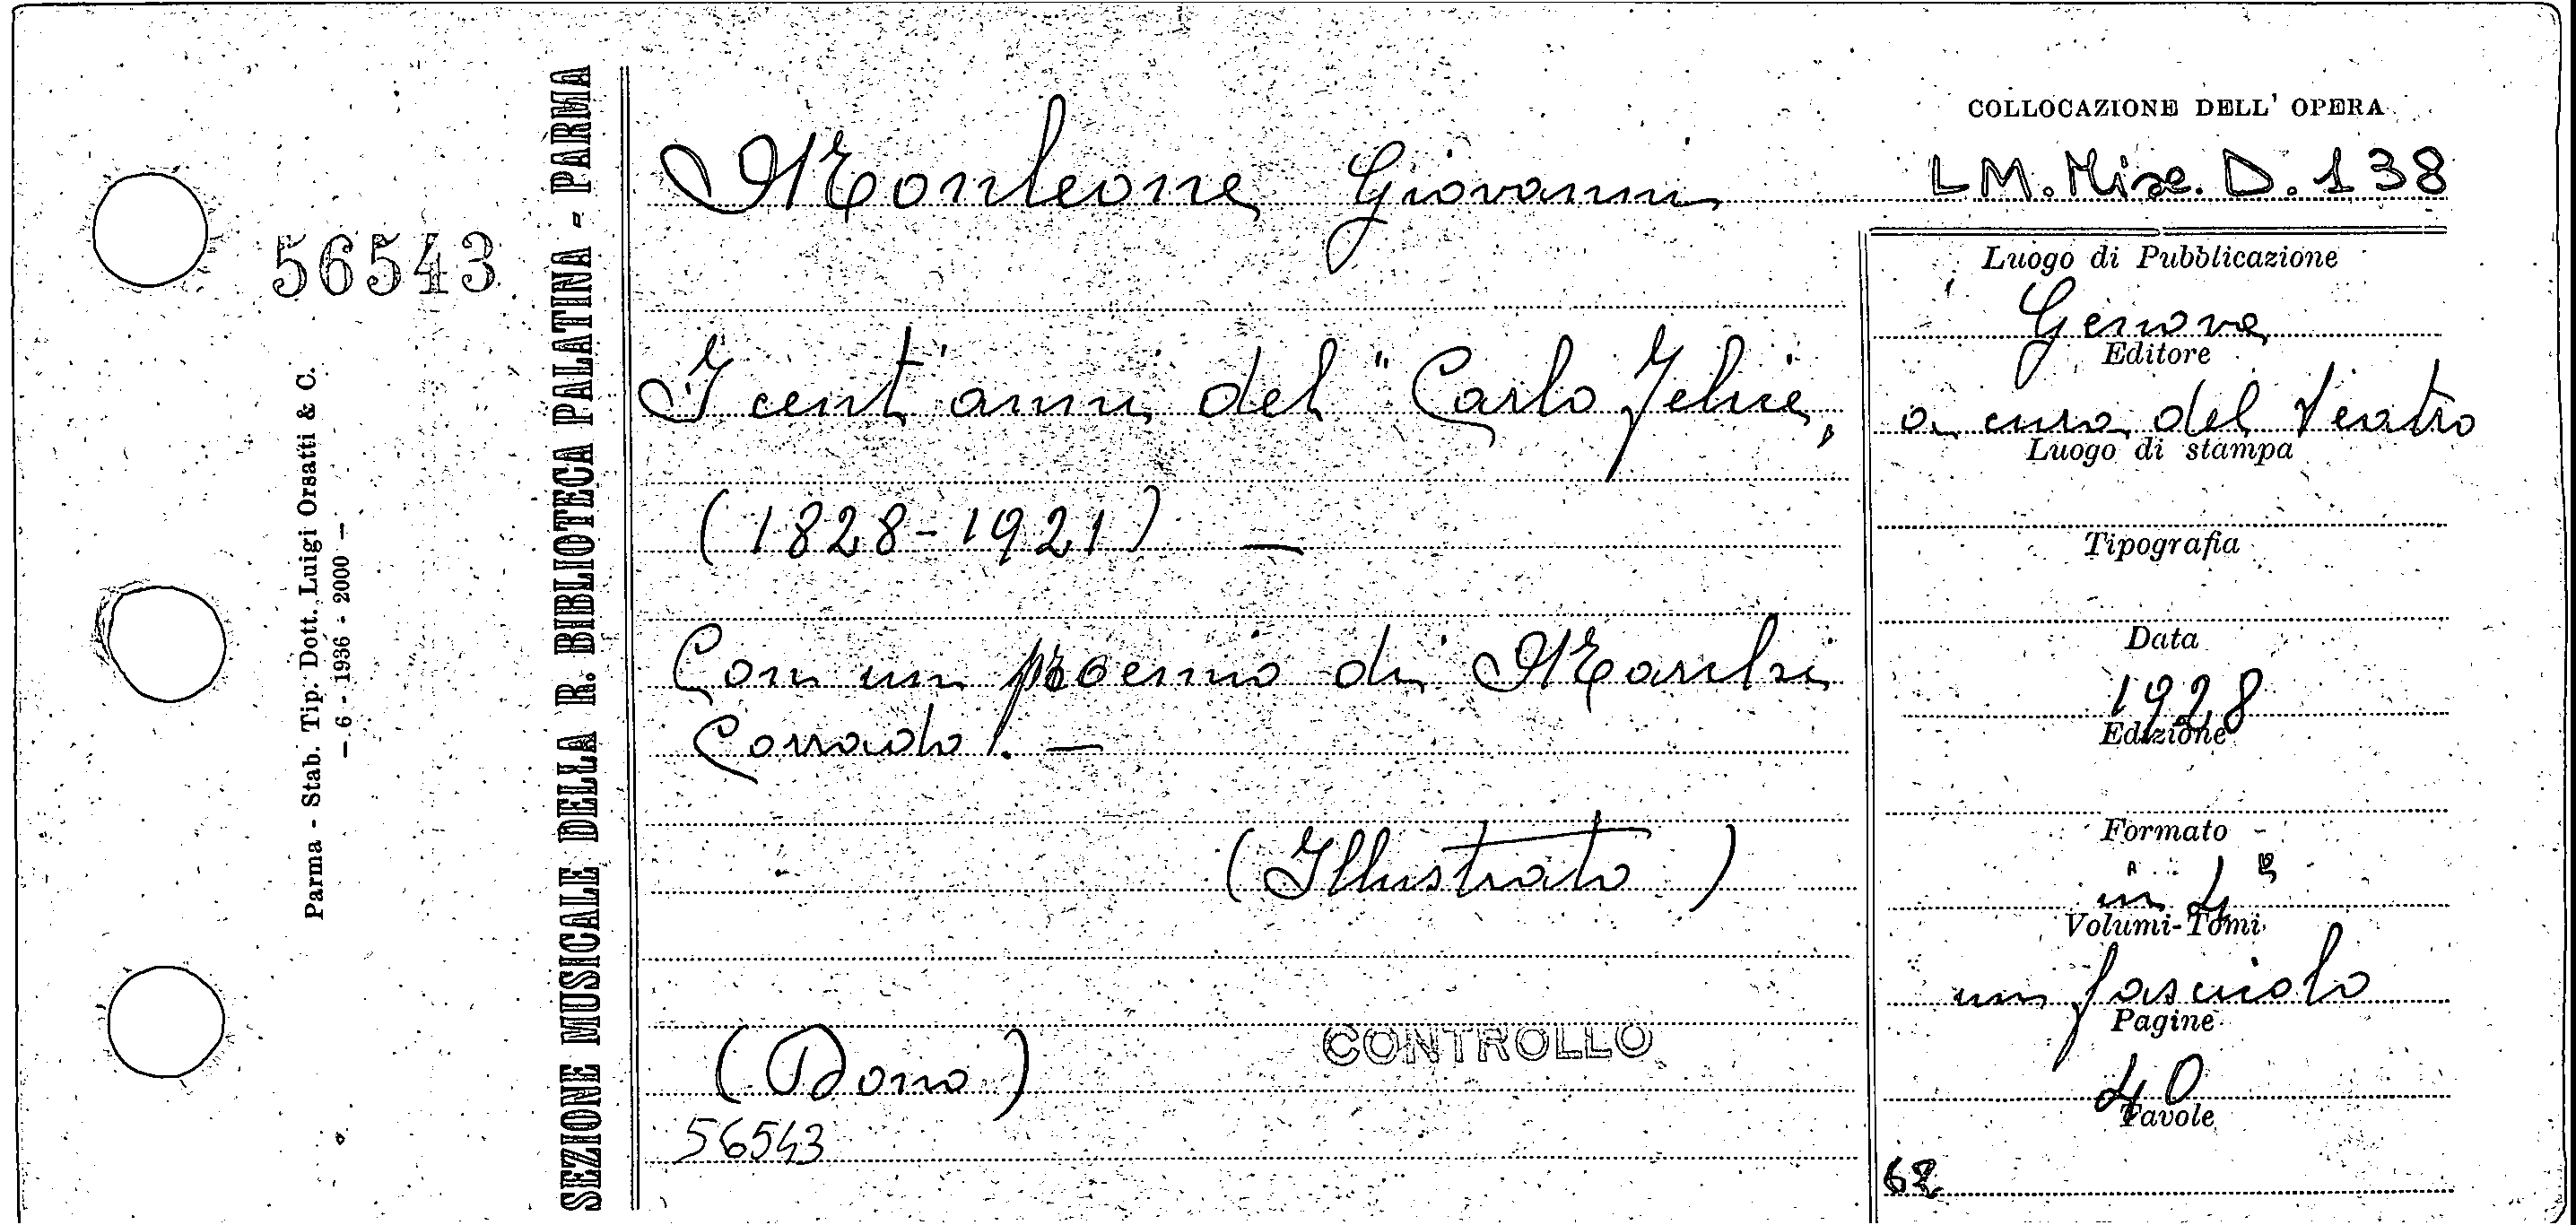 COLLOCAZIONE DELL' OPERA
Monleone Giovanni
LM. Misc. D. 138
56543
Parma - Stab. Tip. Dott. Luigi Orsatti & C.
— 6 - 1936 - 2000 —
SEZIONE MUSICALE DELLA R. BIBLIOTECA PALATINA - PARMA
I cent'anni del "Carlo Felice„
(1828-1921) —
Con un proemio di Marchi
Corrado. —
(Illustrato)
(Dono)
CONTROLLO
56543
Luogo di Pubblicazione
Genova
Editore
a cura del Teatro
Luogo di stampa
Tipografia
Data
1928
Edizione
Formato
in 4°
Volumi-Tomi
un fascicolo
Pagine
40
Tavole
62